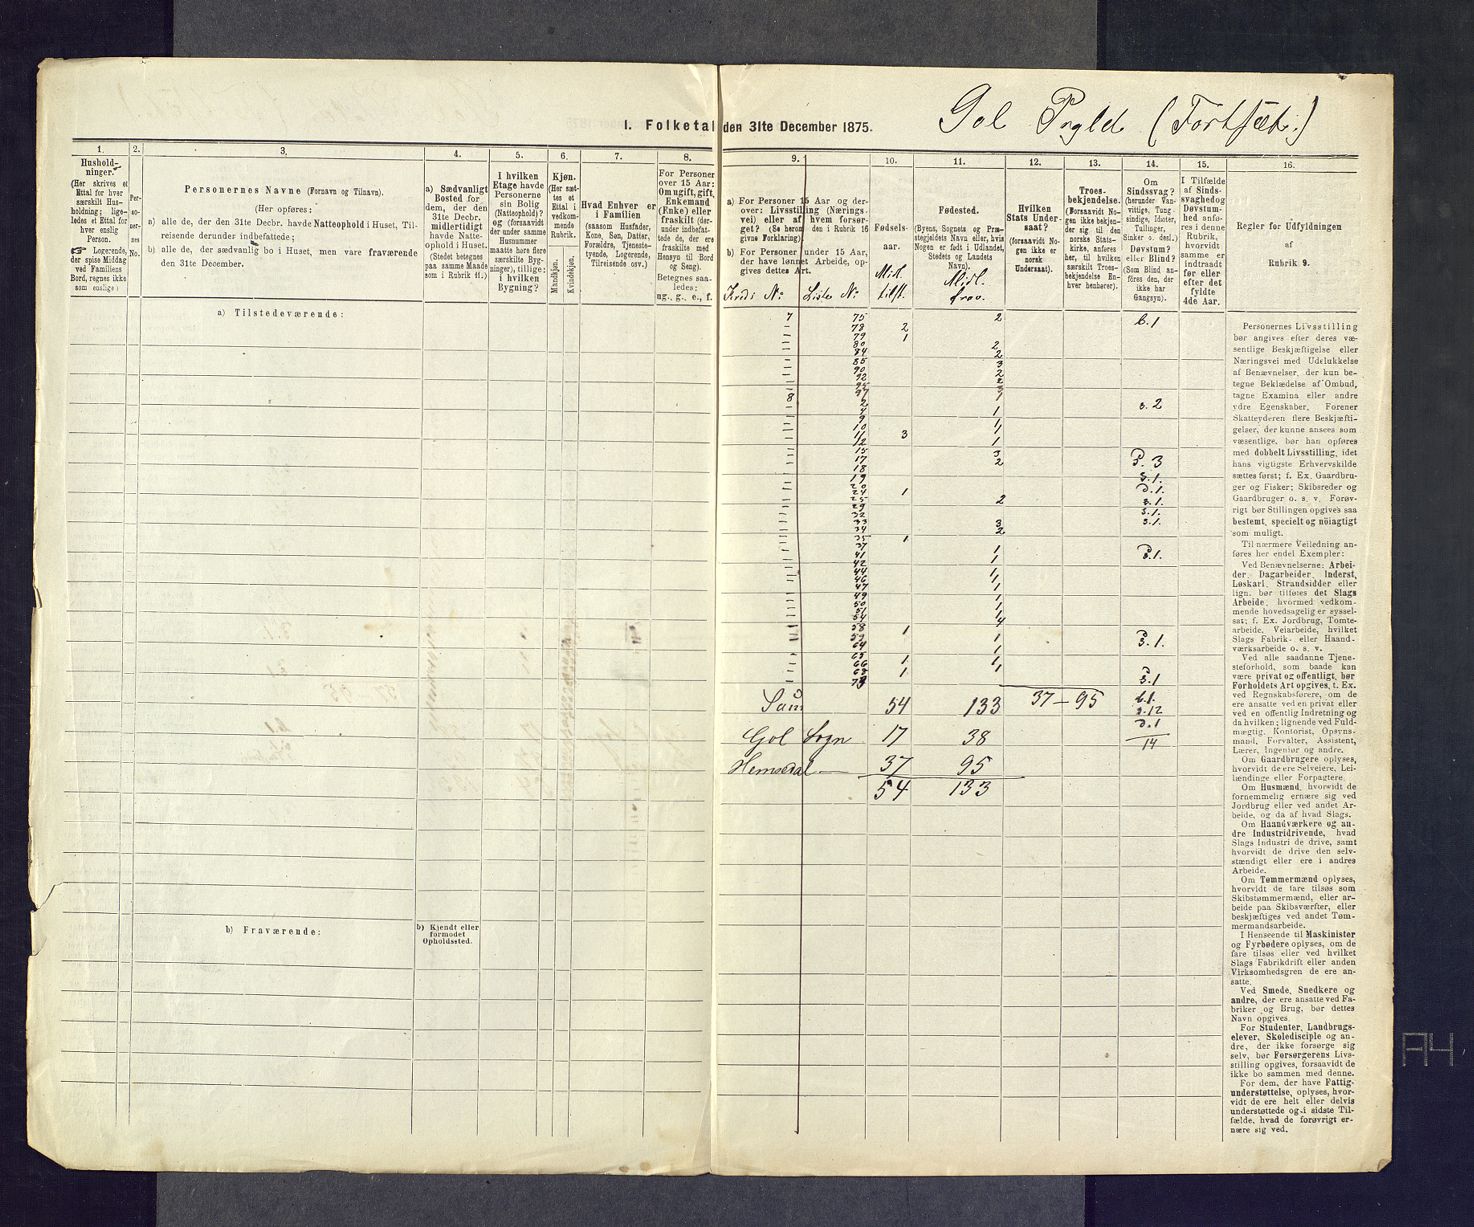 Gol Prgld (Fortsæt.)
I. Folketal den 31te December 1875.
1.
Hushold-
ninger.
(Her skrives et
Ettal for hver
særskilt Hus-
holdning; lige-
ledes et Ettal for
hver enslig
Person.
☞ Logerende,
der spise Middag
ved Familiens
Bord, regnes ikke
som enslige.)
2.
Per-
so-
ner-
nes
No.
3.
Personernes Navne (Fornavn og Tilnavn).
(Her opføres:
a) alle de, der den 31te Decbr. havde Natteophold i Huset, Til-
reisende derunder indbefattede;
b) alle de, der sædvanlig bo i Huset, men vare fraværende
den 31te December.
4.
a) Sædvanligt
Bosted for
dem, der den
31te Decbr.
midlertidigt
havde Natte-
ophold i Huset.
(Stedet betegnes
paa samme Maade
som i Rubrik 11.)
5.
I hvilken
Etage havde
Personerne
sin Bolig
(Natteophold)?
og (forsaavidt
der under samme
Husnummer
maatte høre flere
særskilte Byg-
ninger), tillige:
i hvilken
Bygning?
6.
Kjøn.
(Her sæt-
tes et
Ettal i
vedkom-
mende
Rubrik.
Mandkjøn.
Kvindekjøn.
7.
Hvad Enhver er
i Familien
(saasom Husfader,
Kone, Søn, Datter,
Forældre, Tjeneste-
tyende, Logerende,
Tilreisende osv.)
8.
For Personer
over 15 Aar:
Om ugift, gift,
Enkemand
(Enke) eller
fraskilt (der-
under indbefat-
tede de, der ere
fraskilte med
Hensyn til Bord
og Seng).
Betegnes saa-
ledes:
ug., g., e., f.
9.
a) For Personer 15 Aar og der-
over: Livsstilling (Nærings-
vei) eller af hvem forsør-
get? (Se heron i Rubrik 16
givne Forklaring).
b) For Personer under 15 Aar,
der have lønnet Arbeide, op-
gives dettes Art.
Kreds Nº Liste Nº
10.
Fødsels-
aar.
Midl
tilst.
11.
Fødested.
(Byens, Sognets og Præ-
stegjeldets Navn eller, hvis
Nogen er født i Udlandet,
Stedets og Landets
Navn).
Midl.
frav.
12.
Hvilken
Stats Under-
saat?
(forsaavidt No-
gen ikke er
norsk
Undersaat).
13.
Troes-
bekjendelse.
(Forsaavidt No-
gen ikke bekjen-
der sig til den
norske Stats-
kirke, anføres
her, til hvilken
særskilt Troes-
bekjendelse En-
hver henhører).
14.
Om
Sindssvag?
(herunder Van-
vittige, Tung-
sindige, Idioter,
Tullinger,
Sinker o. desl.)
Døvstum?
eller Blind?
(Som Blind an-
føres den, der
ikke har
Gangsyn).
15.
I Tilfælde
af Sinds-
svaghed og
Døvstum-
hed anfø-
res i denne
Rubrik,
hvorvidt
samme er
indtraadt
før eller
efter det
fyldte
4de Aar.
16.
Regler for Udfyldningen
af
Rubrik 9.
a) Tilstedeværende:
7 75 2 b. 1
78 2
79 1
80 2
84 2
85 3
90 2
92 2
95 3
97 1
8 2 s. 2
4 1
9 1
10 1
11 3
12 1
15 3
17 2 S. 3
18
19 s. 1.
20 D. 1.
24 1
25 2 s. 1.
29 s. 1.
32 s. 1.
33 3
34 2
35 1
37 1 S. 1.
41 1
42
44 1
46 1
47 1
49 1
50 1
51 1
54 4
58 1
59 1 S. 1.
64 1
65 1
66 1 1
68 1 S. 1
73
Sum 54 133 37 – 95 b. 1.
s. 12
D. 1
Gol Sogn 17 38 14
Hemsedal — 37 95
54 133
Personernes Livsstilling
bør angives efter deres væ-
sentlige Beskjæftigelse eller
Næringsvei med Udelukkelse
af Benævnelser, der kun be-
tegne Beklædelse af Ombud,
tagne Examina eller andre
ydre Egenskaber. Forener
Skatteyderen flere Beskjæfti-
gelser, der kunne ansees som
væsentlige, bør han opføres
med dobbelt Livsstilling, idet
hans vigtigste Erhvervskilde
sættes først; f. Ex. Gaardbru-
ger og Fisker; Skibsreder og
Gaardbruger o. s. v. Forøv-
rigt bør Stillingen opgives saa
bestemt, specielt og nöiagtigt
som muligt.
Til nærmere Veiledning an-
føres her endel Exempler:
Ved Benævnelserne: Arbei-
der, Dagarbeider, Inderst,
Løskarl, Strandsidder eller
lign. bør tilføies det Slags
Arbeide, hvormed vedkom-
mende hovedsagelig er syssel-
sat; f. Ex. Jordbrug, Tomte-
arbeide, Veiarbeide, hvilket
Slags Fabrik- eller Haand-
værksarbeide o. s. v.
Ved alle saadanne Tjene-
steforhold, som baade kan
være privat og offentligt, bør
Forholdets Art opgives, t. Ex.
ved Regnskabsførere, om de
ere ansatte ved en privat eller
ved en offentlig Indretning og
da hvilken; lignende ved Fuld-
mægtig, Kontorist, Opsyns-
mand, Forvalter, Assistent,
Lærer, Ingeniør og andre.
Om Gaardbrugere oplyses,
hvorvidt de ere Selveiere, Lei-
lændinge eller Forpagtere.
Om Husmænd, hvorvidt de
fornemmelig ernære sig ved
Jordbrug eller ved andet Ar-
beide, og da af hvad Slags.
Om Haandværkere og an-
dre Industridrivende, hvad
Slags Industri de drive, samt
hvorvidt de drive den selv-
stændigt eller ere i andres
Arbeide.
Om Tømmermænd oplyses,
hvorvidt de fare tilsøs som
Skibstømmermænd, eller ar-
beide paa Skibsværfter, eller
beskjæftiges ved andet Tøm-
mermandsarbeide.
I Henseende til Maskinister
og Fyrbødere oplyses, om de
fare tilsøs eller ved hvilket
Slags Fabrikdrift eller anden
Virksomhedsgren de ere an-
satte.
Ved Smede, Snedkere og
andre, der ere ansatte ved Fa-
briker og Brug, bør dettes
Navn opgives.
For Studenter, Landbrugs-
elever, Skoledisciple og an-
dre, der ikke forsørge sig
selv, bør Forsørgerens Livs-
stilling opgives, forsaavidt de
ikke bo sammen med denne.
For dem, der have Fattig-
understøttelse, oplyses, hvor-
vidt de ere helt eller delvis
understøttede og i sidste Til-
fælde, hvad de forøvrigt er-
nære sig ved.
b) Fraværende:
b) Kjendt eller
formodet
Opholdssted.
A4